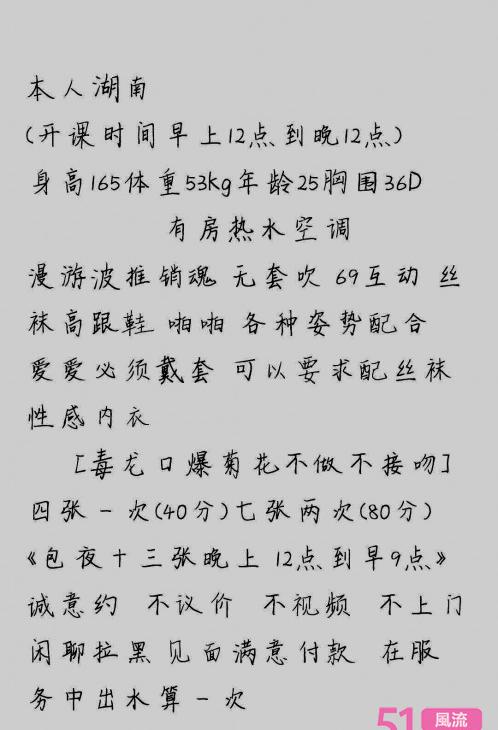 本人湖南
(开课时间早上12点到晚12点)
身高165体重53kg年龄25胸围36D
有房热水空调
漫游波推销魂 无套吹 69互动 丝
袜高跟鞋 啪啪 各种姿势配合
爱爱必须戴套 可以要求配丝袜
性感内衣
[毒龙口爆菊花不做不接吻]
四张一次(40分)七张两次(80分)
《包夜十三张晚上12点到早9点》
诚意约 不议价 不视频 不上门
闲聊拉黑 见面满意付款 在服
务中出水算一次
51風流